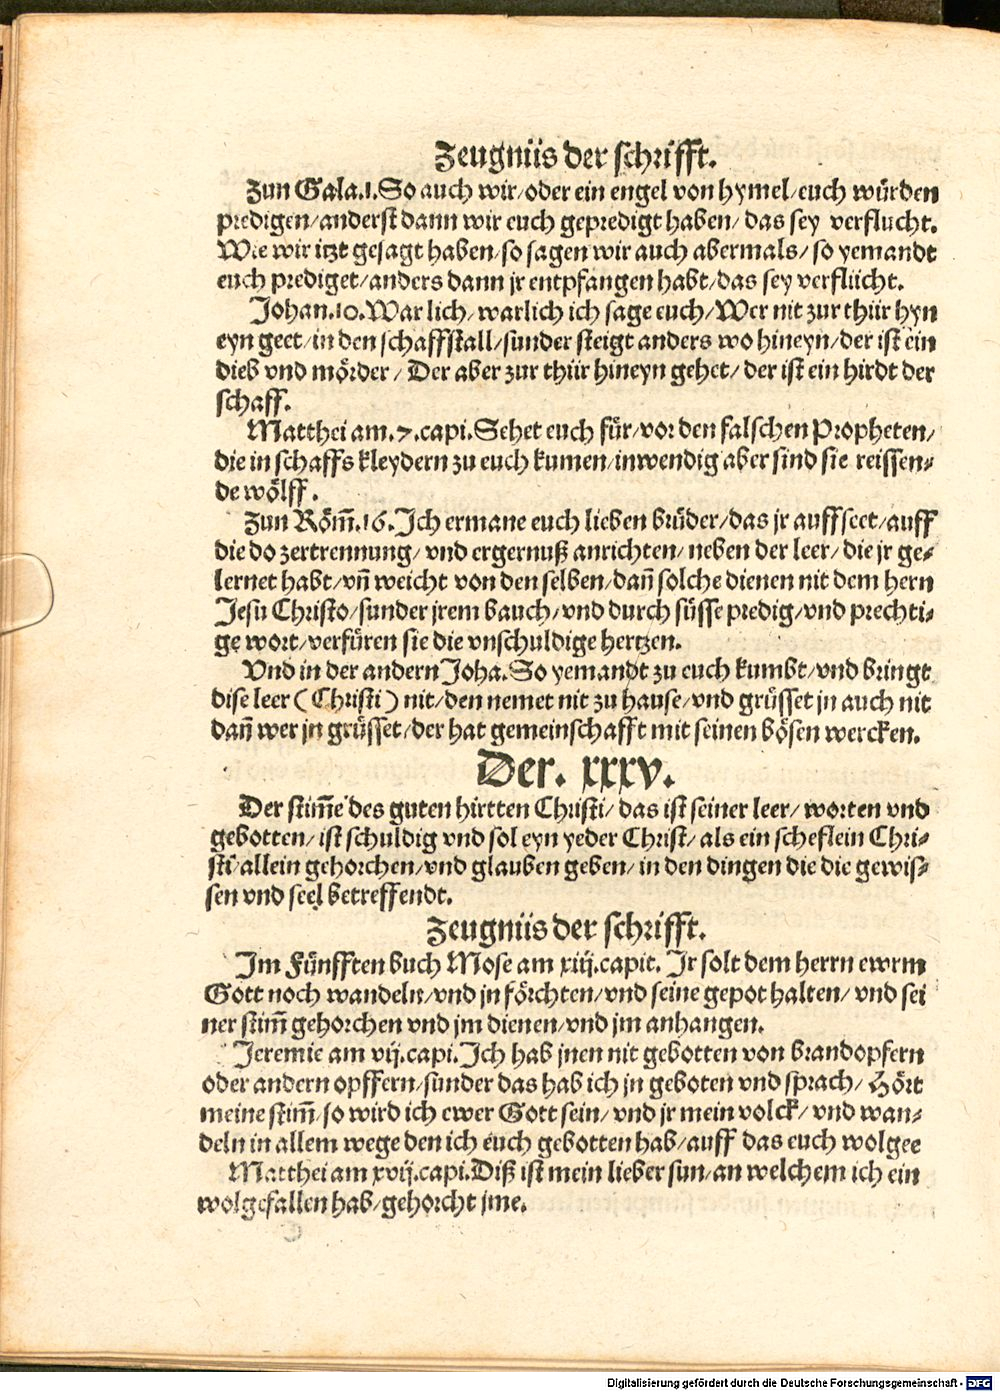 Zeugnüs der schrifft.
Zun Gala.1. So auch wir/oder ein engel von hymel/euch würden
predigen/anderst dann wir euch gepredigt haben/ das sey verflucht.
Wie wir itzt gesagt haben/so sagen wir auch abermals/ so yemandt
euch prediget/anders dann jr entpfangen habt/das sey verflücht.
Johan.10. War lich/warlich ich sage euch/Wer nit zur thür hyn
eyn geet/in den schaffstall/sunder steigt anders wo hineyn/der ist ein
dieb vnd mörder/ Der aber zur thür hineyn gehet/ der ist ein hirdt der
schaff.
Matthei am.7.capi. Sehet euch für/vor den falschen Propheten/
die in schaffs kleydern zu euch kumen/inwendig aber sind sie reissen-
de wölff.
Zun Röm̃.16. Ich ermane euch lieben brüder/das jr auffseet/auff
die do zertrennung/ vnd ergernuß anrichten/ neben der leer/ die jr ge-
lernet habt/vñ weicht von den selben/dañ solche dienen nit dem hern
Jesu Christo/sunder jrem bauch/vnd durch süsse predig/vnd prechti-
ge wort/verfüren sie die vnschuldige hertzen.
Vnd in der andern Joha. So yemandt zu euch kumbt/vnd bringt
dise leer (Christi) nit/den nemet nit zu hause/vnd grüsset jn auch nit
dañ wer jn grüsset/der hat gemeinschafft mit seinen bösen wercken.
Der. xxxv.
Der stim̃e des guten hirtten Christi/ das ist seiner leer/ worten vnd
gebotten/ ist schuldig vnd sol eyn yeder Christ/ als ein scheflein Chri-
sti/allein gehorchen/vnd glauben geben/ in den dingen die die gewis-
sen vnd seel betreffendt.
Zeugnüs der schrifft.
Im Fünfften buch Mose am xiij.capit. Jr solt dem herrn ewrm
Gott noch wandeln/vnd jn förchten/vnd seine gepot halten/ vnd sei
ner stim̃ gehorchen vnd jm dienen/vnd jm anhangen.
Jeremie am vij.capi. Ich hab jnen nit gebotten von brandopfern
oder andern opffern/sunder das hab ich jn geboten vnd sprach/ Hört
meine stim̃/so wird ich ewer Gott sein/ vnd jr mein volck/ vnd wan-
deln in allem wege den ich euch gebotten hab/auff das euch wolgee
Matthei am xvij.capi. Diß ist mein lieber sun/an welchem ich ein
wolgefallen hab/gehorcht jme.
Digitalisierung gefördert durch die Deutsche Forschungsgemeinschaft - DFG